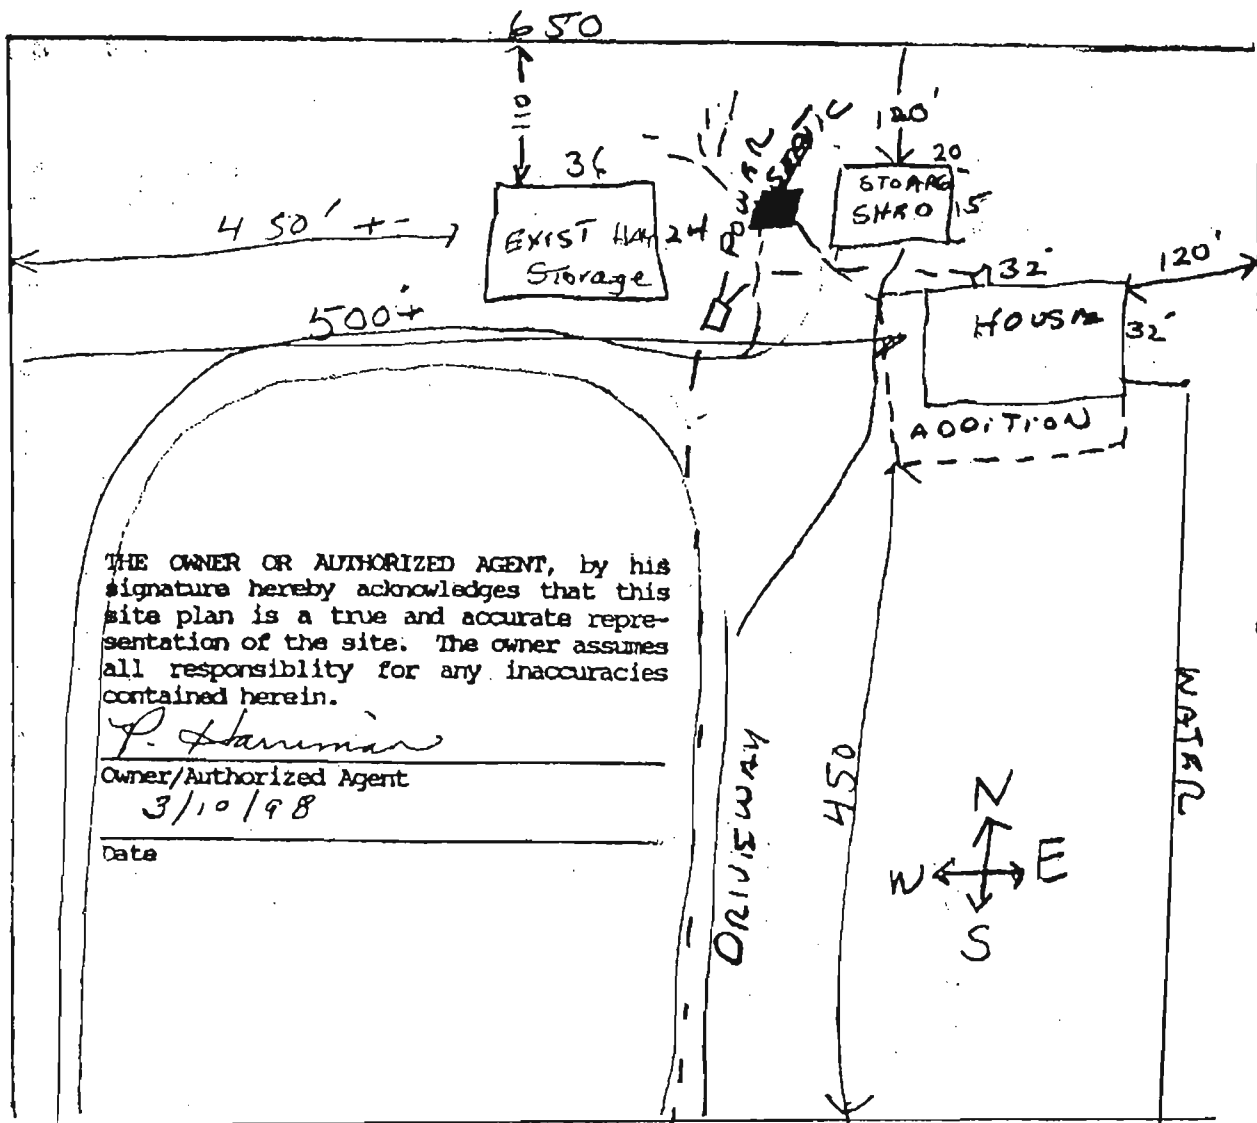 650
110
120'
36
20
POWER
SEPTIC
STORAGE
SHED
15
450' +-
EXIST HAY
Storage
24
32'
120'
500'+
HOUSE
32'
ADDITION
THE OWNER OR AUTHORIZED AGENT, by his
signature hereby acknowledges that this
site plan is a true and accurate repre-
sentation of the site. The owner assumes
all responsiblity for any inaccuracies
contained herein.
P. Harriman
Owner/Authorized Agent
3/10/98
Date
DRIVEWAY
450
WATER
N
W E
S